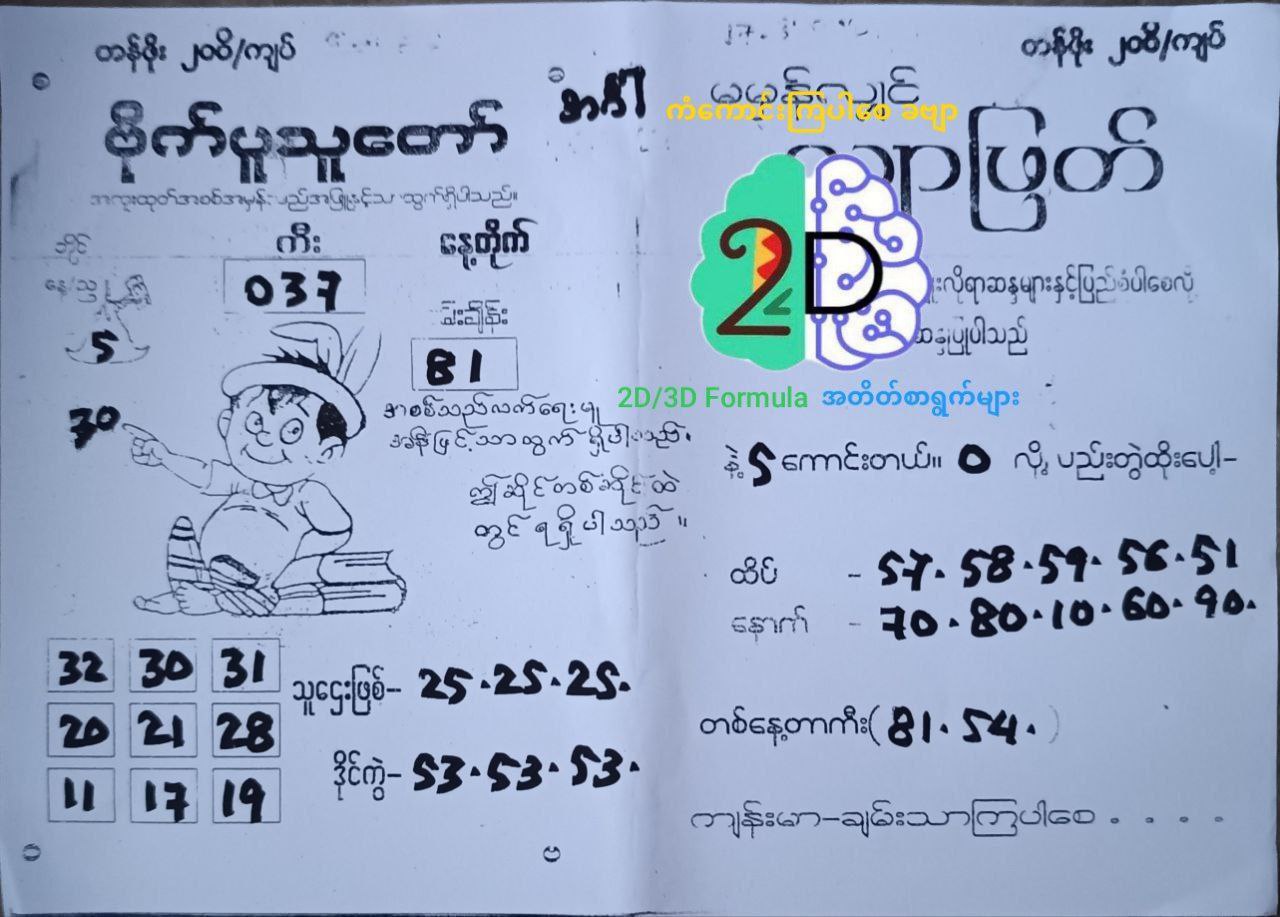 တန်ဖိုး ၂၀၀ိ/ကျပ်
ဗိုက်ပူသူတော်
အထူးထုတ်အစစ်အမှန်
ကီး
နေ့တိုက်
037
5
81
70
အစစ်သည်လက်ရေးမူ
ဤဆိုင်တစ်ဆိုင်ထဲ
တွင် ရရှိပါသည်။
32 30 31
20 21 28
11 17 19
သူဌေးဖြစ်-- 25.25.25.
ဒိုင်ကွဲ- 53.53.53.
တန်ဖိုး ၂၀၀ိ/ကျပ်
အင်္ဂါ
ကံကောင်းကြပါစေ ခဗျာ
2D
လိုရာဆန္ဒများနှင့်ပြည့်စုံပါစေလို့
ဆန္ဒပြုပါသည်
2D/3D Formula အတိတ်စာရွက်များ
နဲ့ 5 ကောင်းတယ်။ 0 လို့ ပည်းတွဲထိုးပေါ့–
ထိပ် - 57.58.59.56.51
နောက် - 70.80.10.60.90.
တစ်နေ့တာကီး(81.54.)
ကျန်းမာ–ချမ်းသာကြပါစေ . . . .